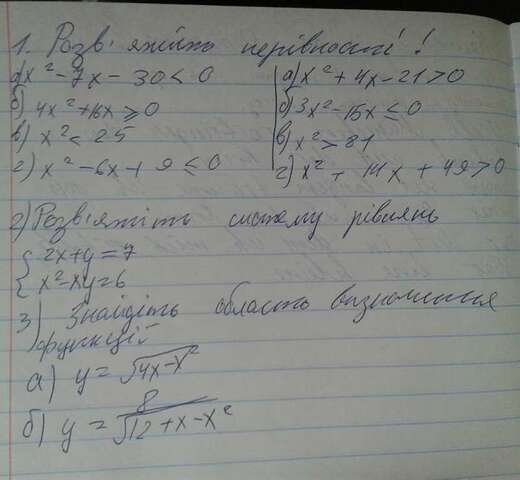 1. Розв'яжіть нерівності!
а) x² - 7x - 30 < 0
б) 4x² + 16x ≥ 0
в) x² < 25
г) x² - 6x + 9 ≤ 0
а) x² + 4x - 21 > 0
б) 3x² - 15x ≤ 0
в) x² > 81
г) x² + 14x + 49 > 0
2) Розв'яжіть систему рівнянь
{ 2x + y = 7
{ x² - xy = 6
3) Знайдіть область визначення
функції
а) y = √4x - x²
б) y = 8/√12 + x - x²